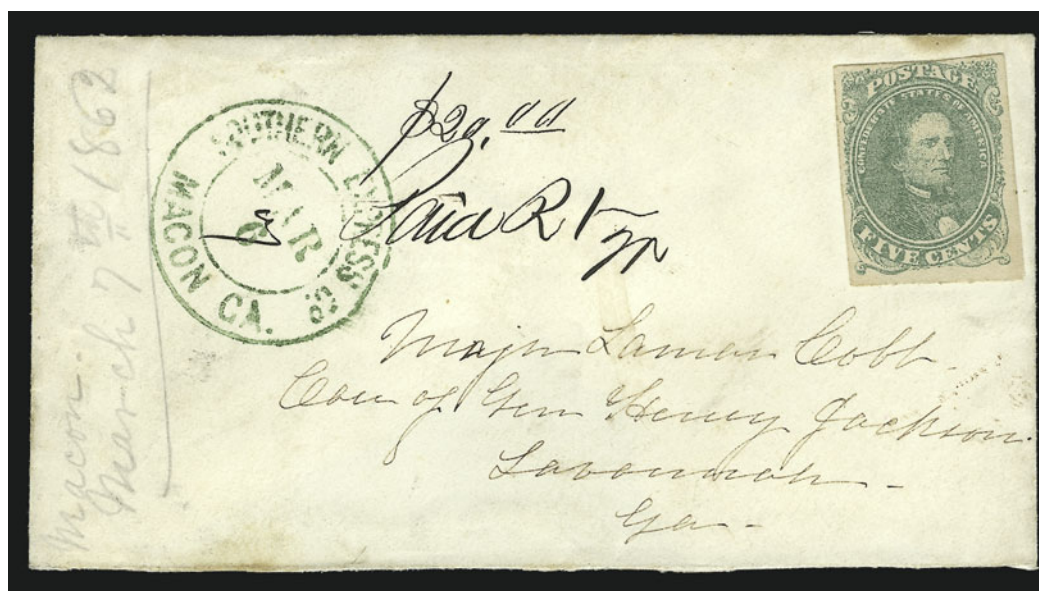 Macon.
March 7th 1862
SOUTHERN EXPRESS CO
MACON GA.
MAR
6
$20.00
Paid
POSTAGE
CONFEDERATE STATES OF AMERICA
FIVE CENTS
Major Lamar Cobb.
Care of Gen Henry Jackson.
Savannah -
Ga -